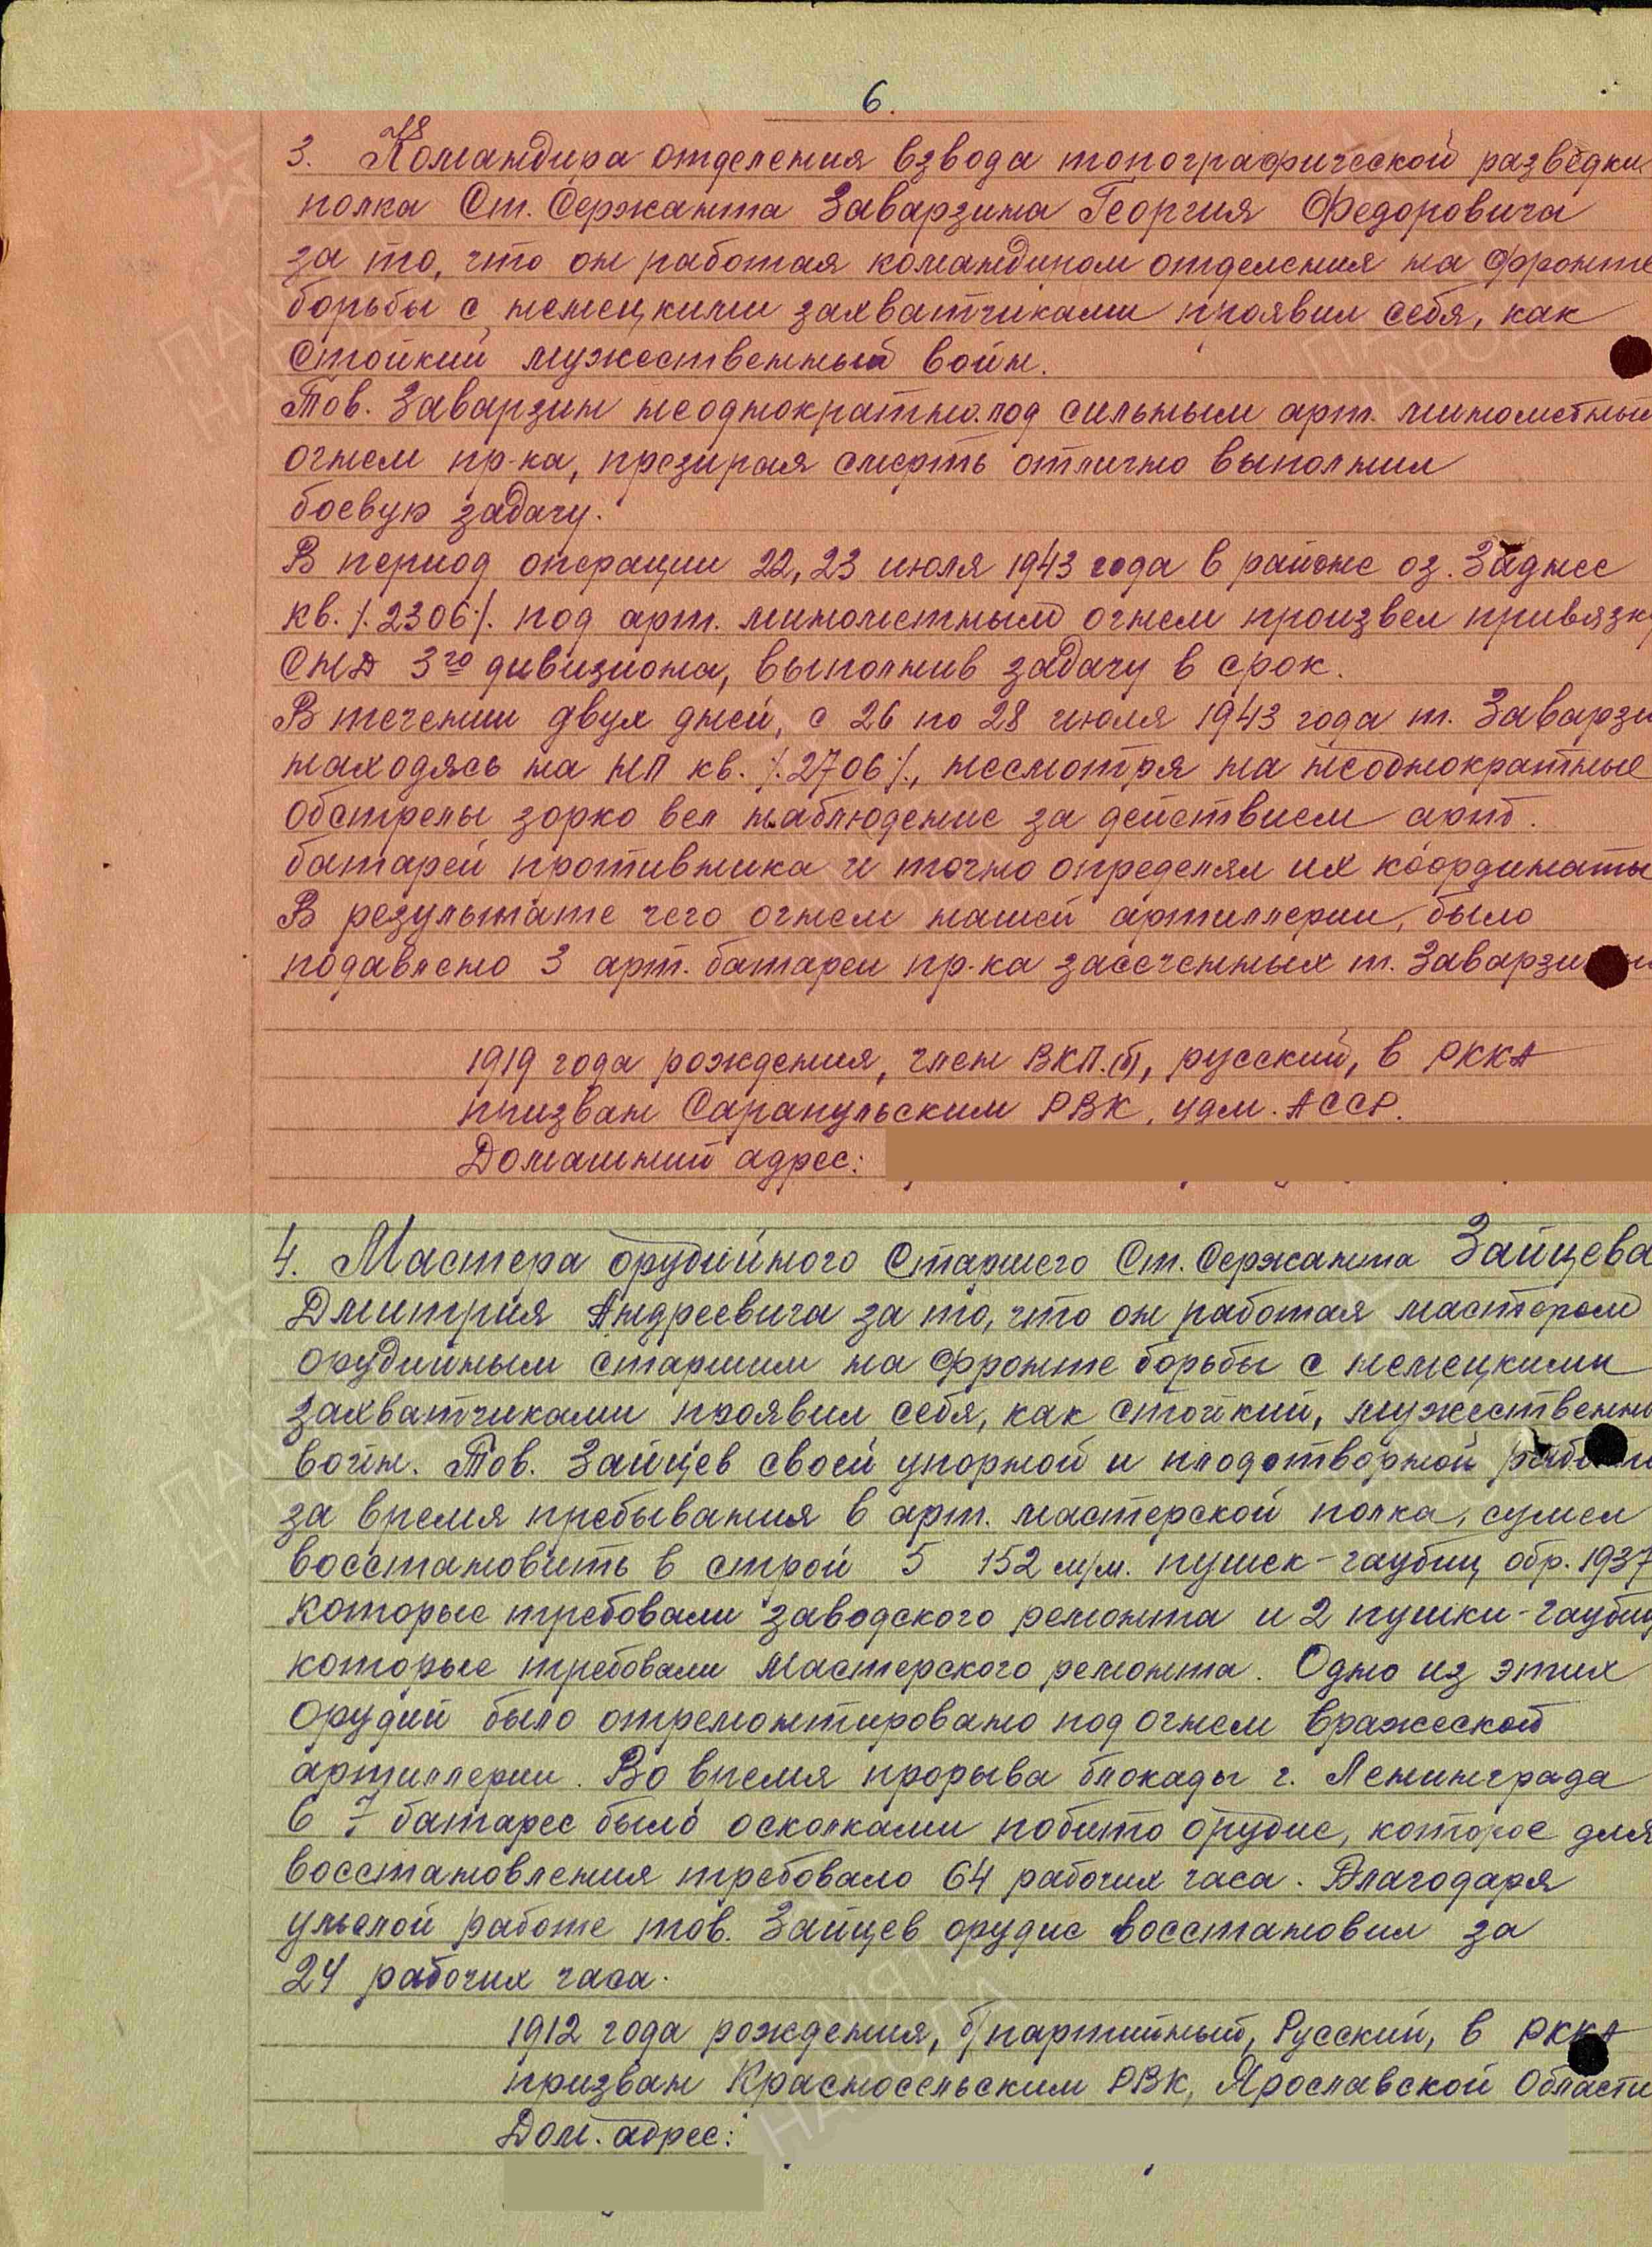 6.
3. Командира отделения взвода топографической разведки
полка Ст. Сержанта Заварзина Георгия Федоровича
за то, что он работая командиром отделения на фронте
борьбы с немецкими захватчиками проявил себя, как
стойкий мужественный войн.
Тов. Заварзин неоднократно под сильным арт. минометным
огнем пр-ка, презирая смерть отлично выполнил
боевую задачу.
В период операции 22, 23 июля 1943 года в районе оз. Заднее
кв. /.2306/. под арт. минометным огнем произвел привязк
СНД 3го дивизиона, выполнив задачу в срок.
В течении двух дней, с 26 по 28 июля 1943 года т. Заварзи
находясь на НП кв. /.2706/., несмотря на неоднократные
обстрелы зорко вел наблюдение за действием арт.
батарей противника и точно определял их координаты
В результате чего огнем нашей артиллерии, было
подавлено 3 арт. батареи пр-ка засеченных т. Заварзи
1919 года рождения, член ВКП.(б), русский, в РККА
призван Сарапульским РВК, Удм. АССР.
Домашний адрес:
4. Мастера орудийного старшего Ст. Сержанта Зайцева
Дмитрия Андреевича за то, что он работая мастером
орудийным старшим на фронте борьбы с немецкими
захватчиками проявил себя, как стойкий, мужественны
войн. Тов. Зайцев своей упорной и плодотворной работ
за время пребывания в арт. мастерской полка, сумел
восстановить в строй 5 152 м/м. пушек-гаубиц обр. 1937
которые требовали заводского ремонта и 2 пушки-гаубиц
которые требовали мастерского ремонта. Одно из этих
орудий было отремонтировано под огнем вражеской
артиллерии. Во время прорыва блокады г. Ленинграда
в 7 батарее было осколками побито орудие, которое для
восстановления требовало 64 рабочих часа. Благодаря
умелой работе тов. Зайцев орудие восстановил за
24 рабочих часа.
1912 года рождения, б/партийный, Русский, в РККА
призван Красносельским РВК, Ярославской области
Дом. адрес:
ПАМЯТЬ
НАРОДА